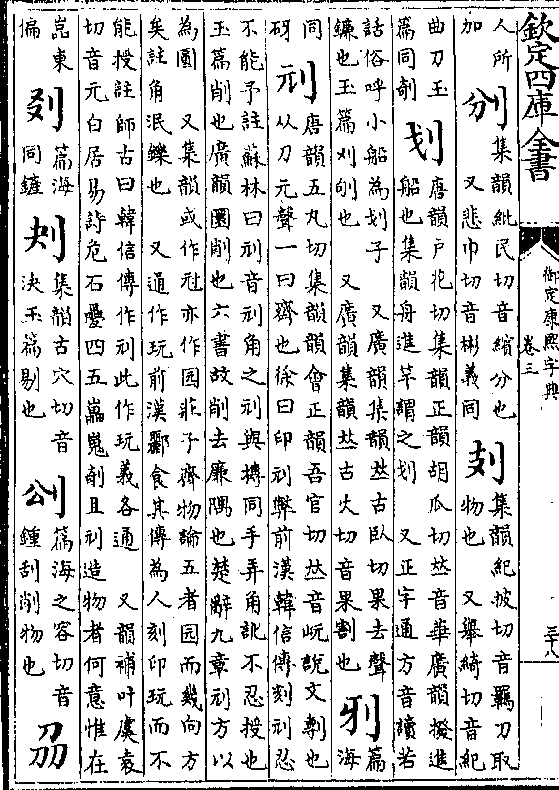 欽定四庫全書
御定康熙字典
卷三
三十八
人所
加
集韻紕民切音繽分也
又悲巾切音彬義同
集韻紀披切音羈刀取
物也 又舉綺切音紀
曲刀玉
篇同剞
划
唐韻戸花切集韻正韻胡瓜切𠀤音華廣韻撥進
船也集韻舟進竿謂之划 又正字通方音讀若
話俗呼小船為划子 又廣韻集韻𠀤古臥切果去聲
鐮也玉篇刈刎也 又廣韻集韻𠀤古火切音果割也
篇
海
同
砑
刓
唐韻五丸切集韻韻會正韻吾官切𠀤音岏說文剸也
从刀元聲一曰齊也徐曰印刓弊前漢韓信傳刻刓忍
不能予註蘇林曰刓音刓角之刓與摶同手弄角訛不忍授也
玉篇削也廣韻圜削也六書故削去廉隅也楚辭九章刓方以
為圜 又集韻或作冠亦作园莊子齊物論五者园而幾向方
矣註角泯鑠也 又通作玩前漢酈食其傳為人刻印玩而不
能授註師古曰韓信傳作刓此作玩義各通 又韻補叶虞袁
切音元白居易詩危石疊四五嵬且刓造物者何意惟在
嵓東
偏
篇海
同鏟
集韻古穴切音
決玉篇剔也
篇海之容切音
鍾刮削物也
刕